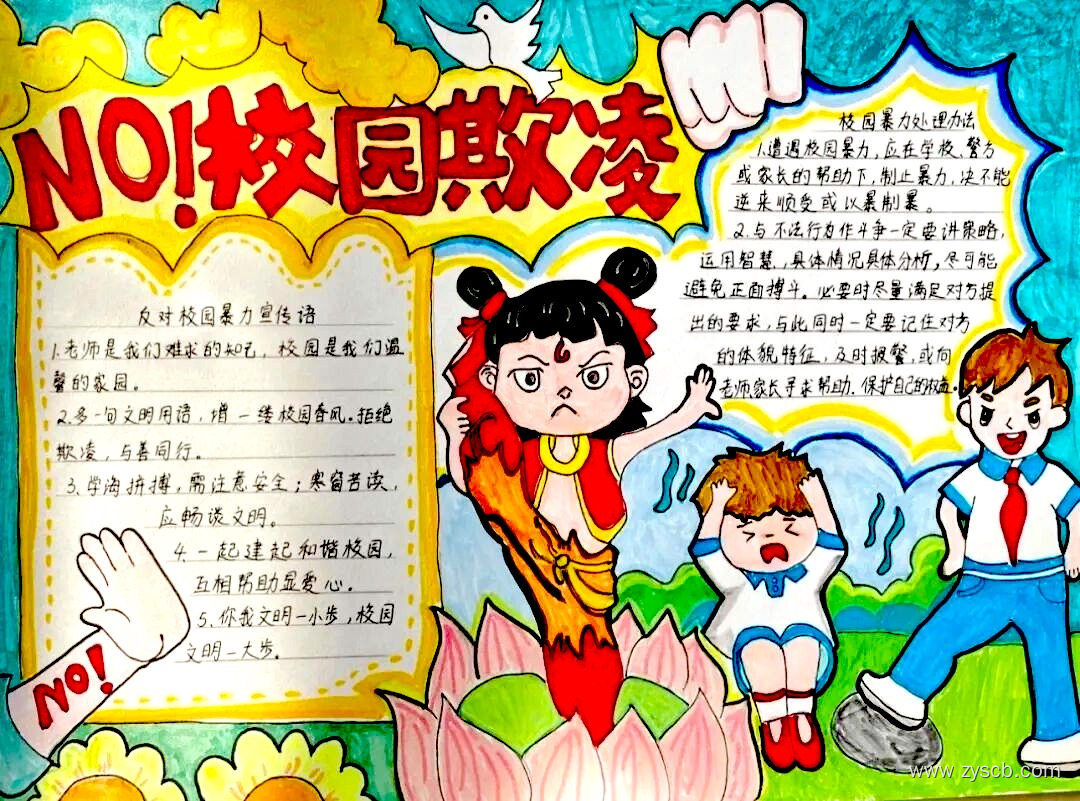 NO!校园欺凌
反对校园暴力宣传语
1.老师是我们难求的知己，校园是我们温
馨的家园。
2.多一句文明用语，增一缕校园春风。拒绝
欺凌，与善同行。
3.学海拼搏，需注意安全；寒窗苦读，
应畅谈文明。
4.一起建起和谐校园，
互相帮助显爱心。
5.你我文明一小步，校园
文明一大步。
NO!
校园暴力处理办法
1.遭遇校园暴力，应在学校、警方
或家长的帮助下，制止暴力，决不能
逆来顺受或以暴制暴。
2.与不法行为作斗争一定要讲策略，
运用智慧，具体情况具体分析，尽可能
避免正面搏斗。必要时尽量满足对方提
出的要求，与此同时一定要记住对方
的体貌特征，及时报警，或向
老师家长寻求帮助.保护自己的权益。
www.zyscb.com